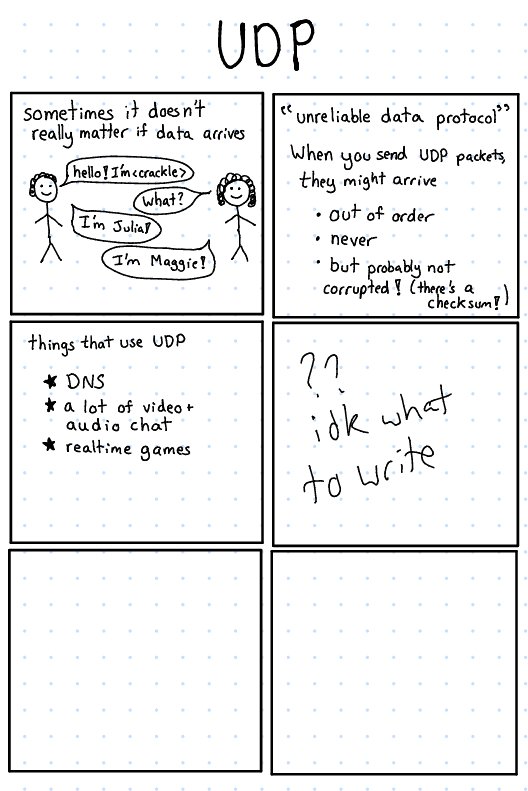 UDP
sometimes it doesn't
really matter if data arrives
hello! I'm <crackle>
what?
I'm Julia!
I'm Maggie!
"unreliable data protocol"
When you send UDP packets,
they might arrive
• out of order
• never
• but probably not
corrupted! (there's a
checksum!)
things that use UDP
★ DNS
★ a lot of video +
audio chat
★ realtime games
??
idk what
to write